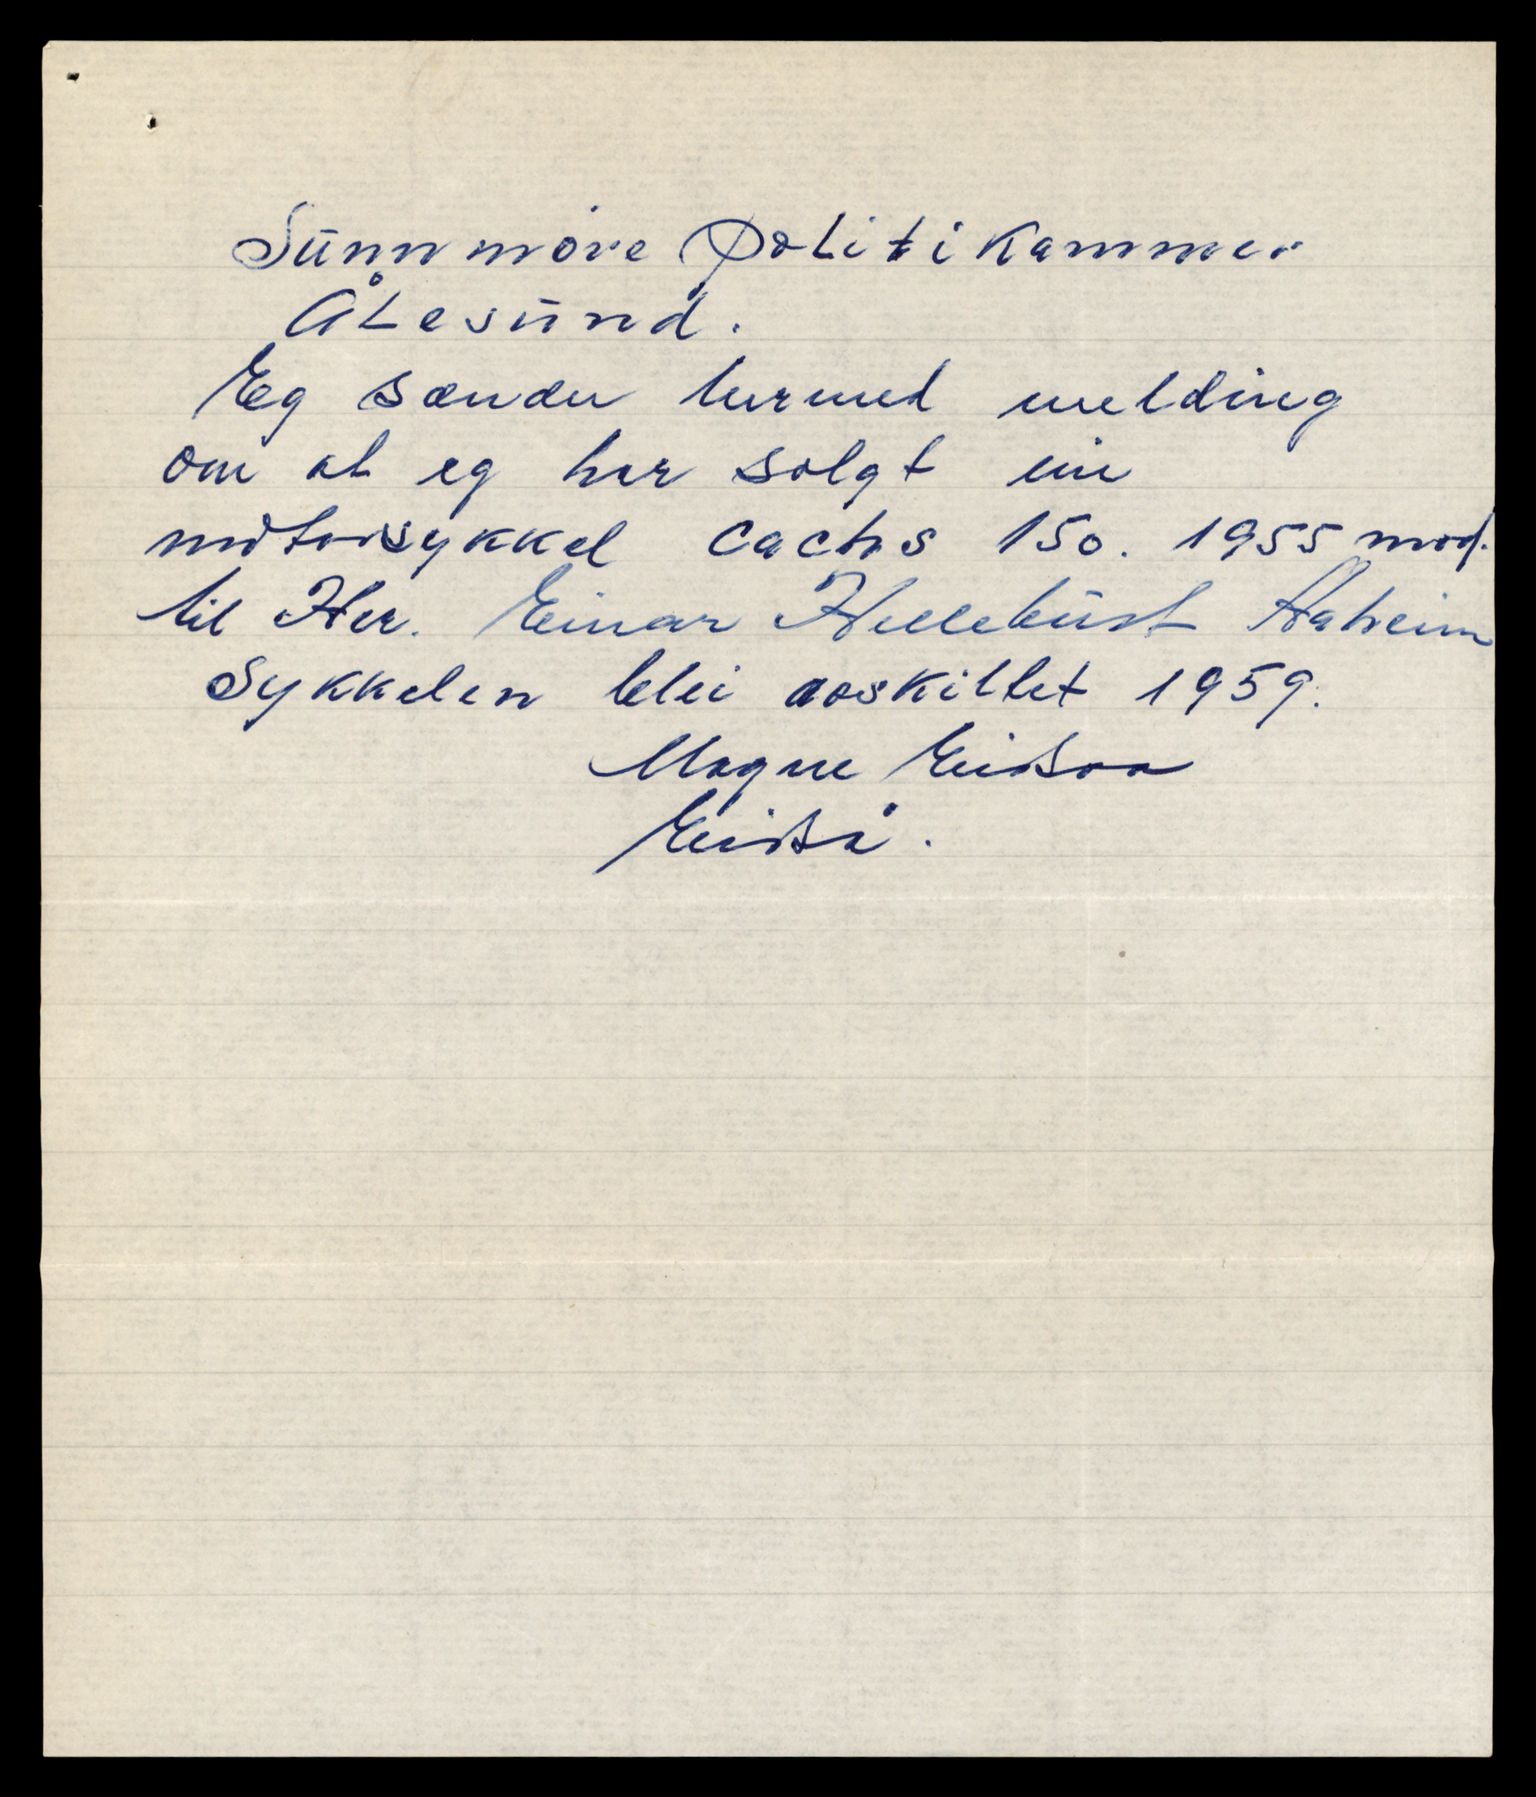 Sunnmöre Politikammer
Ålesund.
Eg sender hermed melding
om at eg har solgt ein
motorsykkel Cachs 150. 1955 mod.
til Her. Einar Hellebust Aaheim
Sykkelen blei avskiltet 1959.
Magne Eidsaa
Eidså.